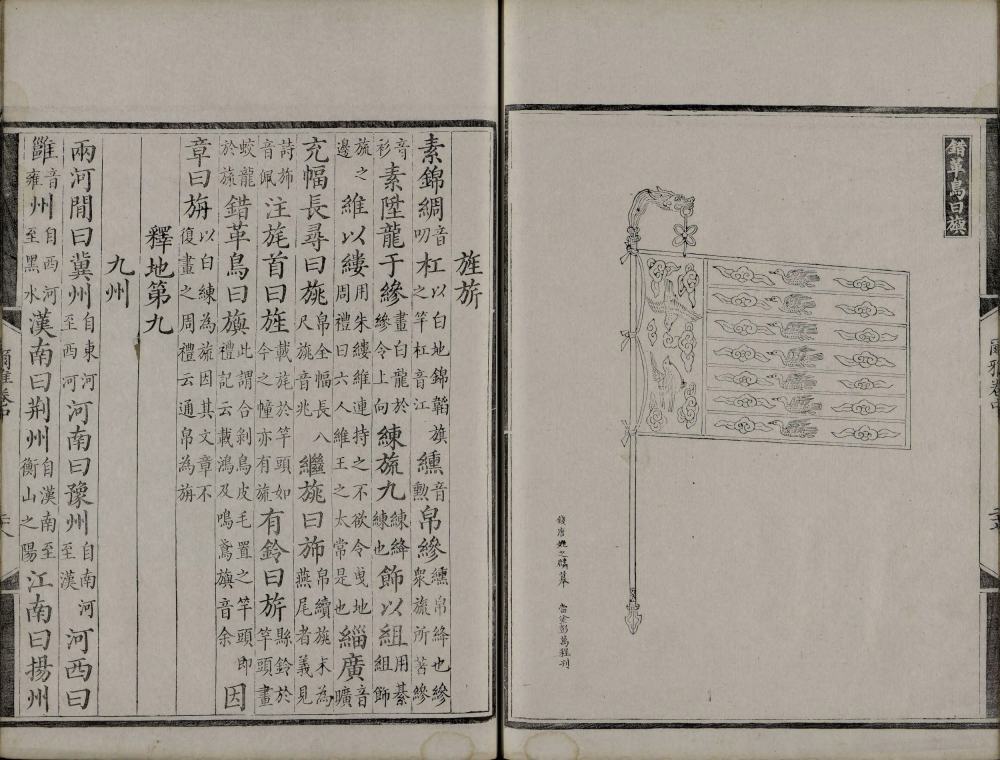 錯革鳥曰旟
錢唐姚之麟摹　當塗彭萬程刊
爾雅卷中
旌旂
素錦綢音叨杠以白地錦韜旗之竿杠音江纁音勳帛縿纁帛絳也縿衆旒所著縿
音衫素陞龍于縿畫白龍於縿令上向練旒九練絳練也飾以組用綦組飾
旒之邊維以縷用朱縷維連持之不欲令曳地周禮曰六人維王之太常是也緇廣音曠
充幅長尋曰旐帛全幅長八尺旐音兆繼旐曰旆帛續旐末為燕尾者義見
詩旆音佩注旄首曰旌載旄於竿頭如今之幢亦有旒有鈴曰旂縣鈴於竿頭畫
蛟龍於旒錯革鳥曰旟此謂合剝鳥皮毛置之竿頭即禮記云載鴻及鳴鳶旟音余因
章曰旃以白練為旒因其文章不復畫之周禮云通帛為旃
釋地第九
九州
兩河閒曰冀州自東河至西河河南曰豫州自南河至漢河西曰
雝音雍州自西河至黑水漢南曰荆州自漢南至衡山之陽江南曰揚州
爾雅卷中